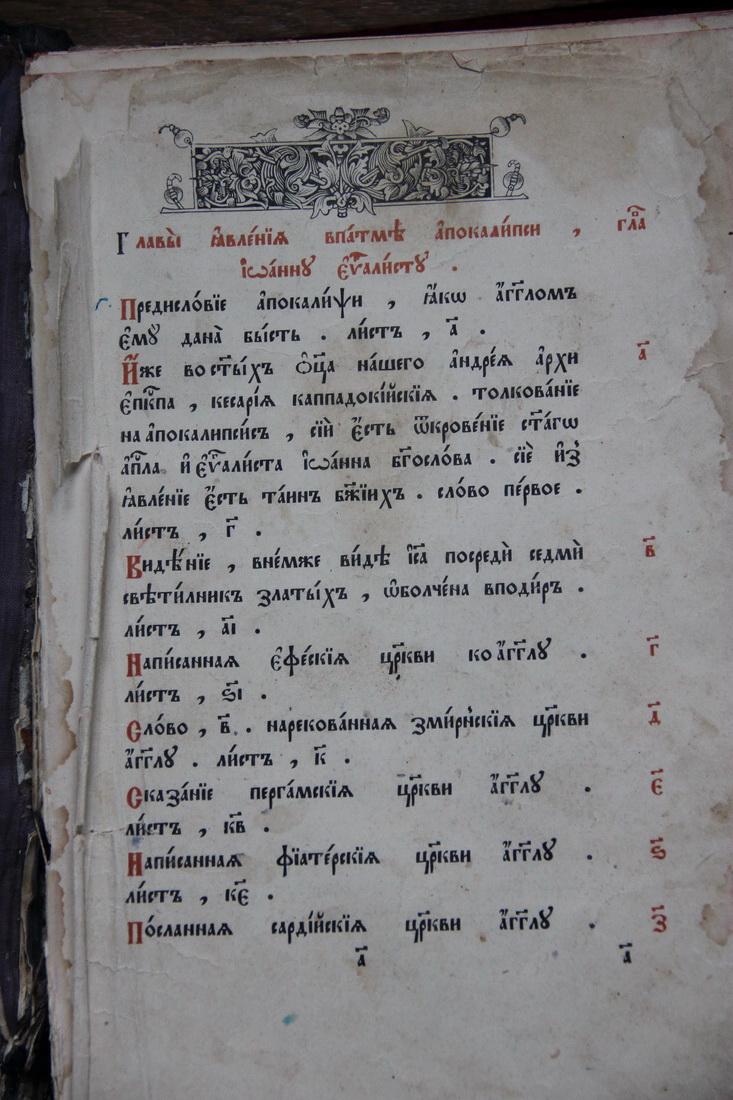 Главы̀ ꙗ҆вле́нїѧ впа́тмѣ а҆покали́пси , гла̑
і҆ѡа́ннꙋ є҆ѵⷢ҇али́стꙋ .
Предисло́вїе а҆покали́ѱи , ꙗ҆́кѡ а҆́гг҃ломъ
є҆мꙋ̀ дана̀ бы́сть . ли́стъ , а҃ .
И҆́же во ст҃ы́хъ ѻ҆ц҃а̀ на́шего а҆ндре́ѧ а҆рхи а҃
є҆пкⷭ҇па , кесарі́ѧ каппадокі́йскїѧ . толкова́нїе
на а҆покали́псисъ , сі́й є҆́сть ѿкрове́нїе ст҃а́гѡ
а҆пⷭ҇ла и҆ є҆ѵⷢ҇али́ста і҆ѡа́нна бг҃осло́ва . сїѐ и҆з̾
ꙗ҆вле́нїе є҆́сть та́инъ бж҃їихъ . сло́во пе́рвое .
ли́стъ , г҃ .
Видѣ́нїе , вне́мже ви́дѣ і҆с҃а посредѝ седмѝ в҃
свѣти́лникъ златы́хъ , ѡ҆болче́на вподи́ръ .
ли́стъ , а҃і .
Напи́саннаѧ є҆фе́скїѧ цр҃кви ко а҆́гг҃лꙋ . г҃
ли́стъ , ѕ҃і .
Сло́во , в҃ . нарекова́ннаѧ зми́рнскїѧ цр҃кви д҃
а҆́гг҃лꙋ . ли́стъ , к҃ .
Сказа́нїе перга́мскїѧ цр҃кви а҆́гг҃лꙋ . є҃
ли́стъ , к҃в .
Напи́саннаѧ фїате́рскїѧ цр҃кви а҆́гг҃лꙋ . ѕ҃
ли́стъ , к҃є .
По́сланнаѧ сарді́йскїѧ цр҃кви а҆́гг҃лꙋ . з҃
а҃ а҃